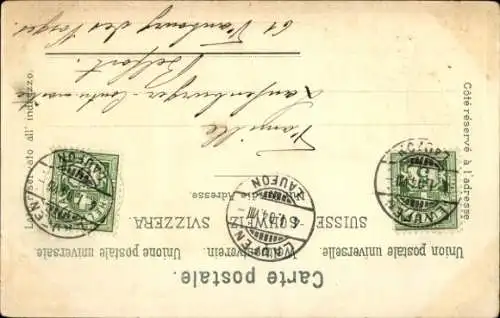 Carte postale.
Union postale universelle. Weltpostverein. Unione postale universale.
SUISSE. SCHWEIZ. SVIZZERA.
Côté réservé à l'adresse.
Nur für die Adresse.
Lato riservato all' indirizzo.
LAUFEN
LAUFON
Famille
Belfort.
61 Faubourg des Vosges.